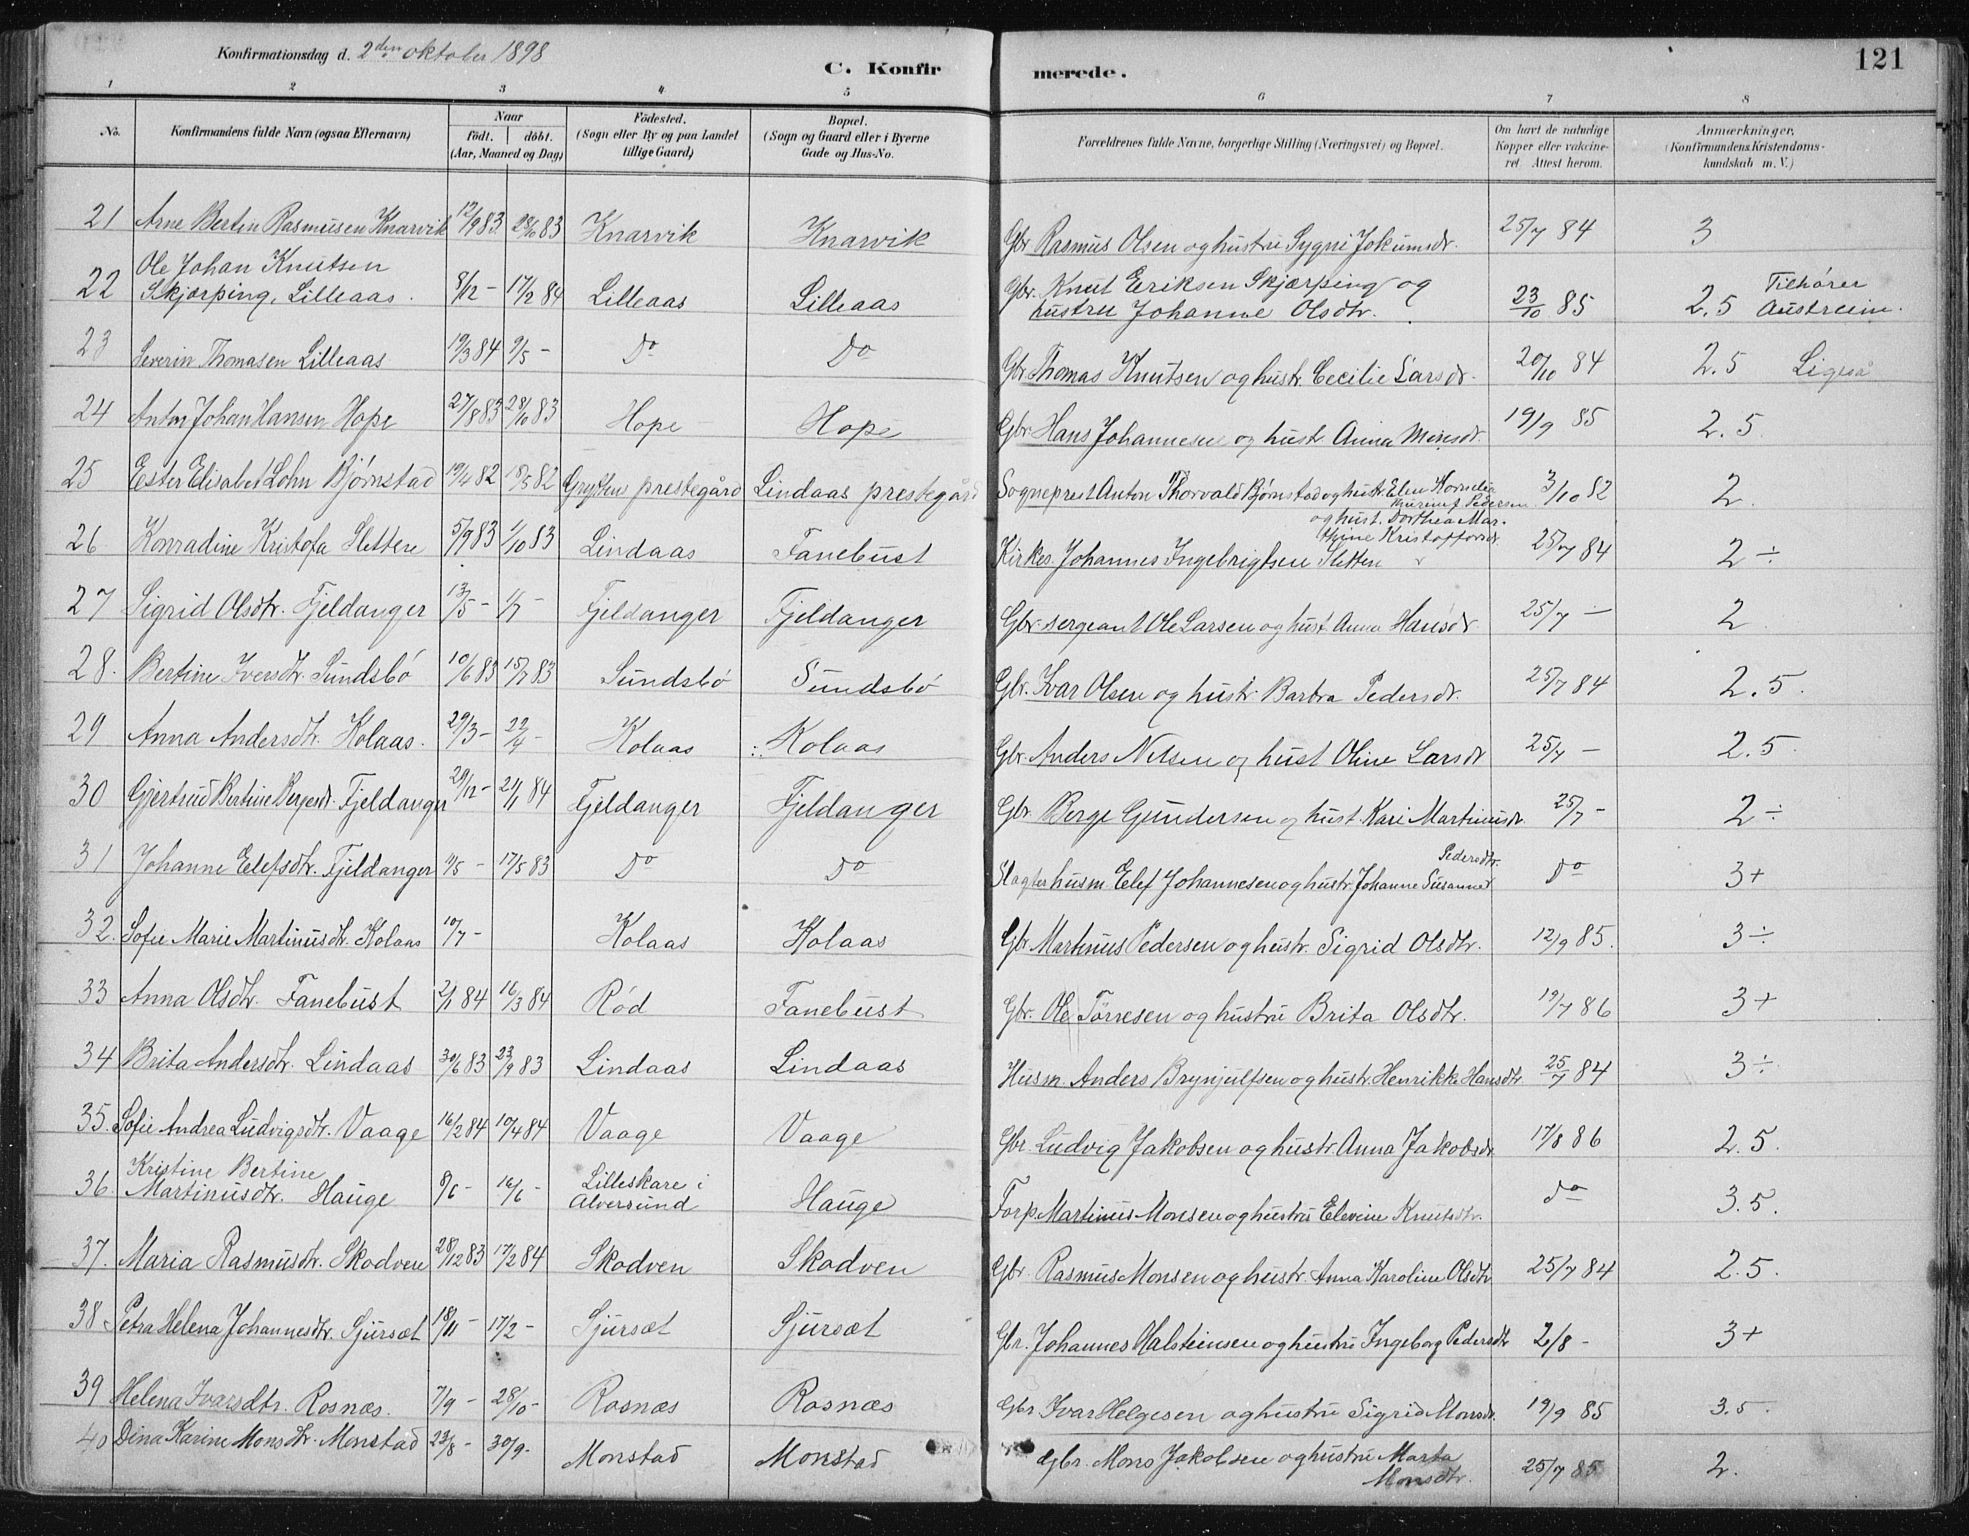 Konfirmationsdag d. 2den oktober 1898
C. Konfirmerede.
121
1 2 3 4 5 6 7 8
No.
Konfirmandens fulde Navn (ogsaa Efternavn)
Naar
födt. döbt.
(Aar, Maaned og Dag)
Födested.
(Sogn eller By og paa Landet
tillige Gaard)
Bopæl.
(Sogn og Gaard eller i Byerne
Gade og Hus-No.
Forældrenes fulde Navne, borgerlige Stilling (Næringsvei) og Bopæl.
Om havt de naturlige
Kopper eller vakcine-
ret. Attest herom.
Anmærkninger.
(Konfirmandens Kristendoms-
kundskab m. V.)
21 Arne Bertin Rasmusen Knarvik 12/9 83 28/10 83 Knarvik Knarvik Gbr. Rasmus Olsen og hustru Sygni Jokumsdr. 25/7 84 3
22 Ole Johan Knutsen
Skjærping, Lilleaas. 8/12 - 17/2 84 Lilleaas Lilleaas Gbr. Knut Eriksen Skjærping og
hustru Johanne Olsdtr. 23/10 85 2.5 Tilhører
Austreim.
23 Severin Thomasen Lilleaas 19/3 84 9/5 - Do Do Gbr. Thomas Knutsen og hustr. Cecilie Larsdr. 20/10 84 2.5 Ligeså
24 Anton Johan Hansen Hope 27/8 83 28/10 83 Hope Hope Gbr. Hans Johannesen og hustr. Anna Monsdr. 19/9 85 2.5
25 Ester Elisabet Lohn Bjørnstad 19/4 82 18/5 82 Grytten prestegård Lindaas prestegård Sogneprest Anton Thorvald Bjørnstad og hustr. Elen Kornelia
Pedersen 3/10 82 2
26 Konradine Kristofa Slettene 5/9 83 1/10 83 Lindaas Fanebust Kirkes. Johannes Ingebrigtsen Sletten
og hust. Dorthea Mar-
thine Kristoffersdr. 25/7 84 2 ÷
27 Sigrid Olsdtr. Fjeldanger 13/5 - 1/7 - Fjeldanger Fjeldanger Gbr. sergeant Ole Larsen og hust. Anna Hansdr. 25/7 - 2
28. Bertine Iversdtr. Sundsbö 10/6 83 15/7 83 Sundsbö Sundsbö Gbr. Ivar Olsen og hustr. Barbra Pedersdr. 25/7 84 2.5.
29 Anna Andersdtr. Kolaas. 29/3 - 22/4 - Kolaas Kolaas Gbr. Anders Nilsen og hust Oline Larsdr 25/7 - 2.5.
30 Gjertrud Bertine Bergesdr. Fjeldanger 29/12 - 21/1 84 Fjeldanger Fjeldanger Gbr. Berge Gundersen og hust. Kari Martinusdr. 25/7 - 2 ÷
31 Johanne Elefsdtr. Fjeldanger 11/5 - 17/5 83 Do Do Slagter husm. Elef Johannesen og hustr. Johanne Susanne
Pedersdtr. do 3+
32. Sofie Marie Martinusdtr. Kolaas 10/7 - Kolaas Kolaas Gbr Martinus Pedersen og hustr. Sigrid Olsdtr. 12/9 85. 3÷
33 Anna Olsdtr. Fanebust 2/1 84 16/3 84 Röd Fanebust Gbr. Ole Törresen og hustru Brita Olsdtr. 19/7 86 3+
34 Brita Andersdtr. Lindaas 30/6 83 23/9 83 Lindaas Lindaas Husm. Anders Brynjulfsen og hustr. Henrikke Hansdtr. 25/7 84 3÷
35. Sofie Andrea Ludvigsdtr. Vaage 16/2 84 10/4 84 Vaage Vaage Gbr. Ludvig Jakobsen og hustr. Anna Jakobsdr. 17/8 86 2.5.
36. Kristine Bertine
Martinusdtr. Hauge 8/6 - 16/6 - Lilleskare i
Alversund Hauge Forp. Martinus Monsen og hustru Elevine Knutsdtr. do 3.5.
37. Maria Rasmusdtr. Skodven 28/12 83 17/2 84 Skodven Skodven Gbr. Rasmus Monsen og hustr. Anna Karoline Olsdtr 25/7 84 2.5.
38. Petra Helena Johannesdtr. Sjursæt 18/11 - 17/2 - Sjursæt Sjursæt Gbr. Johannes Halsteinsen og hustru Ingeborg Pedersdtr 2/8 - 3+
39 Helena Ivarsdtr. Rosnæs. 7/9 - 28/10 - Rosnæs Rosnæs Gbr. Ivar Helgesen og hustru Sigrid Monsdr. 19/9 85 3.5.
40 Dina Karine Monsdtr. Monstad 23/8 - 30/9 - Monstad Monstad Gbr. Mons Jakobsen og hustru Marta
Monsdtr. 25/7 85 2.